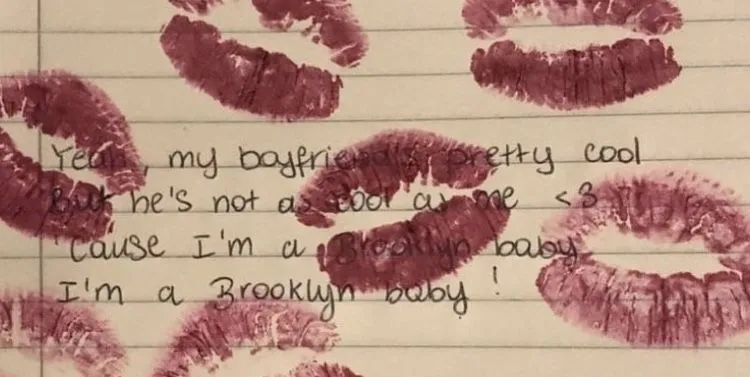 Yeah, my boyfriend's pretty cool
But he's not as cool as me <3
'Cause I'm a Brooklyn baby
I'm a Brooklyn baby!